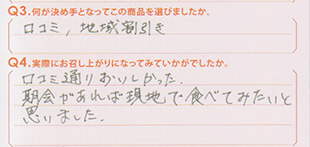 Q3.何が決め手となってこの商品を選びましたか。
口コミ,地域割引き
Q4.実際にお召し上がりになってみていかがでしたか。
口コミ通りおいしかった.
期会があれば現地で食べてみたいと
思いました.